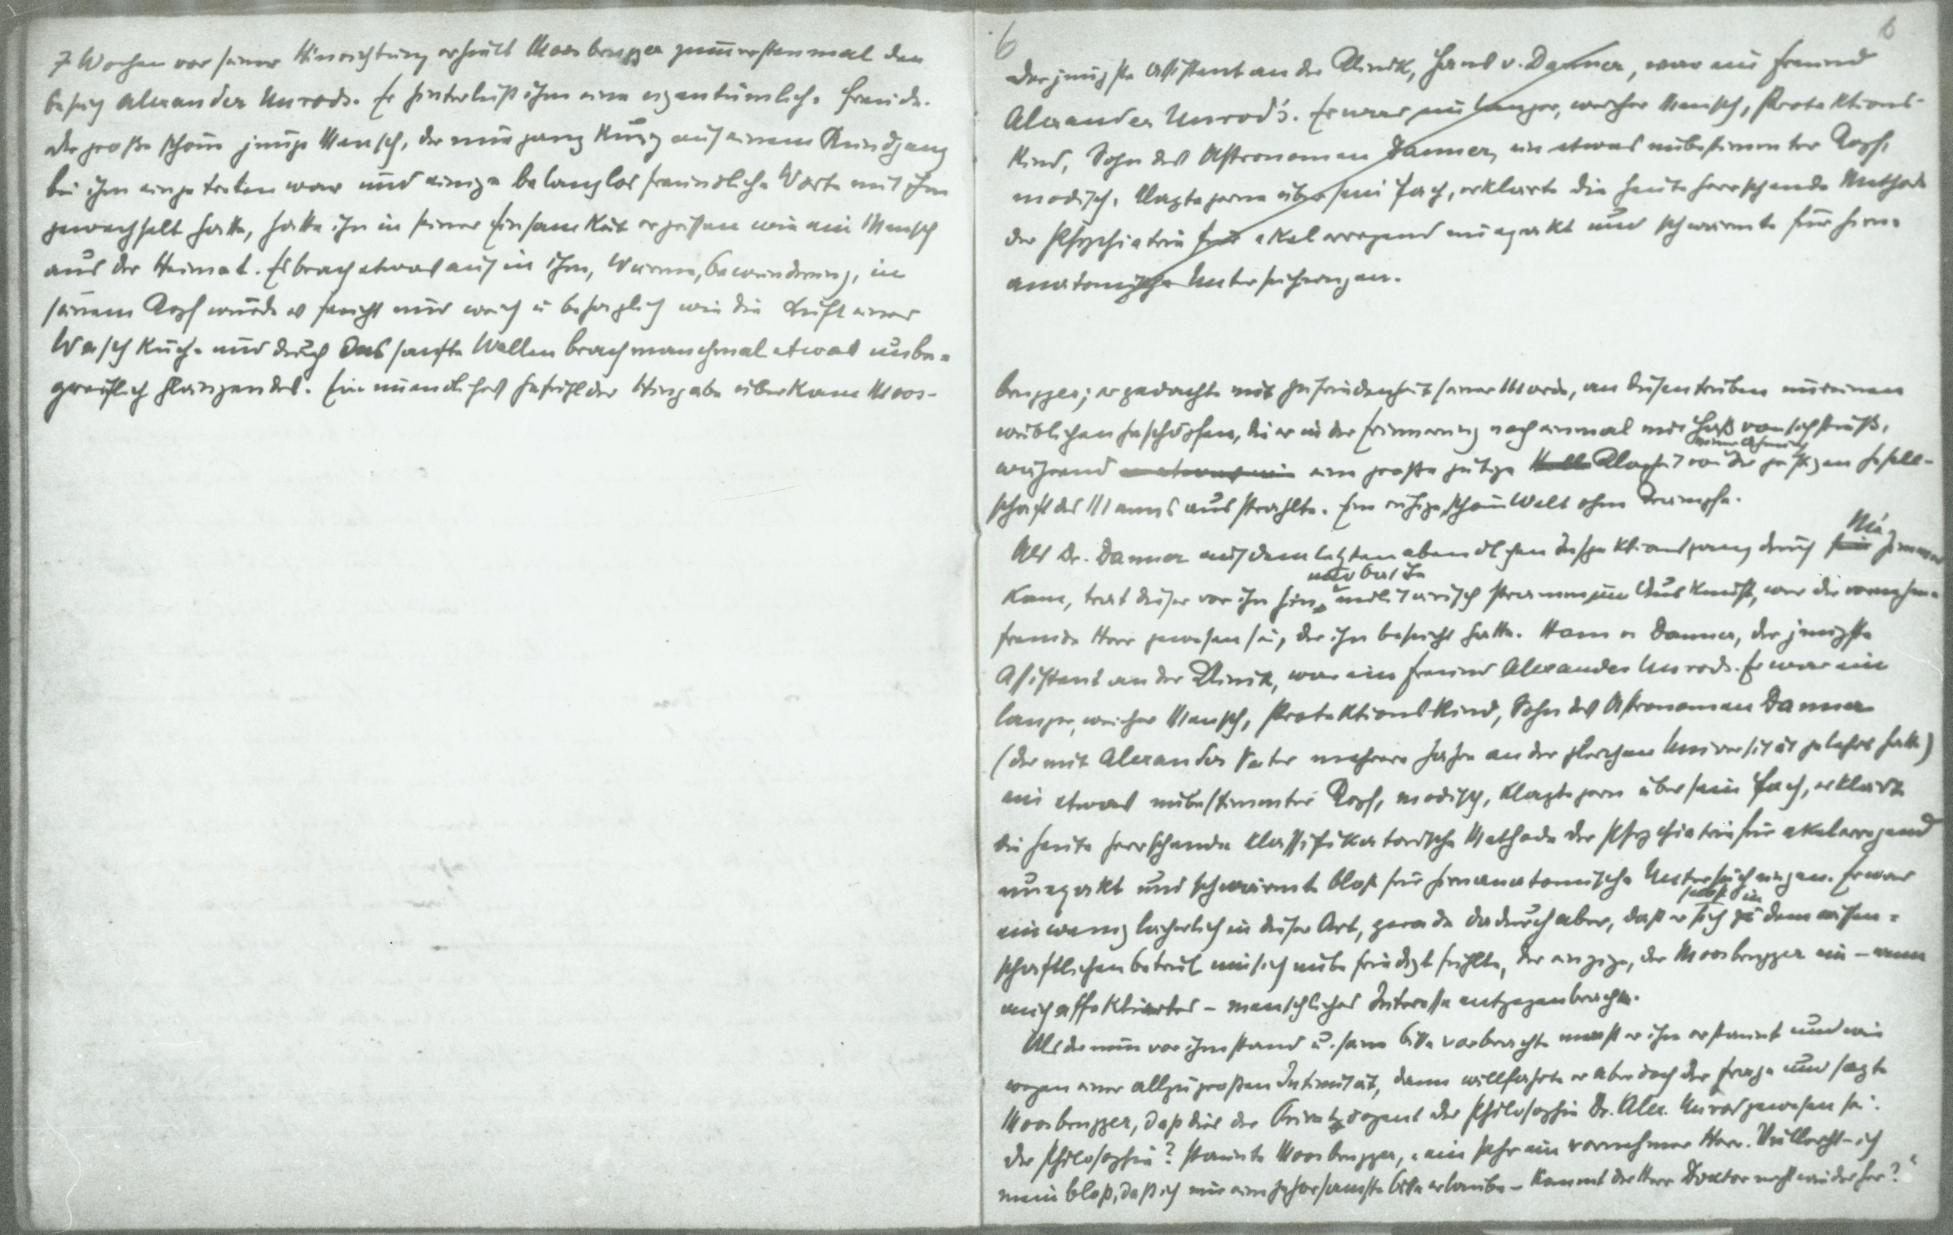 7 Wochen vor seiner Hinrichtung erhielt Moosbrugger zum erstenmal den
Besuch Alexander Unrods. Er hinterließ ihm eine eigentümliche Freude.
Der große schöne junge Mensch, der nur ganz kurz auf einem Rundgang
bei ihm eingetreten war und einige belanglos freundliche Worte mit ihm
gewechselt hatte, hatte ihn in seiner Einsamkeit ergriffen wie ein Mensch
aus der Heimat. Es brach etwas auf in ihm, Wärme, Bewunderung, in
seinem Kopf wurde es feucht und weich u behaglich wie die Luft einer
Waschküche und durch das sanfte Wallen brach manchmal etwas unbe-
greiflich Glänzendes. Ein unendliches Gefühl der Hingabe überkam Moos-
6
6
Der jüngste Assistent an der Klinik, Hans v. Danner, war ein Freund
Alexander Unrod's. Er war ein langer, weicher Mensch, Protektions-
kind, Sohn des Astronomen Danner, ein etwas unbestimmter Kopf,
modisch, klagte gerne über sein Fach, erklärte die heute herrschende Methode
der Psychiatrie für ekelerregend unexakt und schwärmte für hirn-
anatomische Untersuchungen.
brugger; er gedachte mit Zufriedenheit seiner Morde, an diesen trüben unreinen
weiblichen Geschöpfen, die er in der Erinnerung noch einmal mit Haß von sich stieß,
während ein große gütige Klarheit von der geistigen Gesell-
schaft des Manns ausstrahlte. Eine ruhige, schöne Welt ohne Krämpfe.
Als Dr. Danner auf dem letzten abendlichen Inspektionsgang durch die Zimmer
kam, trat dieser vor ihn hin, und bat ihn militärisch stramm um Auskunft, wer der vornehme
fremde Herr gewesen sei, der ihn besucht hatte. Hans v Danner, der jüngste
Assistent an der Klinik, war ein Freund Alexander Unrods. Er war ein
langer, weicher Mensch, Protektionskind, Sohn des Astronomen Danner
(der mit Alexanders Vater mehrere Jahre an der gleichen Universität gelehrt hatte)
ein etwas unbestimmter Kopf, modisch, klagte gern über sein Fach, erklärte
die heute herrschende klassifikatorische Methode der Psychiatrie für ekelerregend
unexakt und schwärmte bloß für hirnanatomische Untersuchungen. Er war
ein wenig lächerlich in dieser Art, gerade dadurch aber, daß er sich in dem wissen-
schaftlichen Betrieb unbefriedigt fühlte, der einzige, der Moosbrugger ein – wenn
auch affektiertes – menschliches Interesse entgegenbrachte.
Als der nun vor ihm stand u. seine Bitte vorbrachte maß er ihn erstaunt und wie
wegen einer allzugroßen Intimität, dann willfahrte er aber doch der Frage und sagte
Moosbrugger, daß dies der Privatdozent der Philosophie Dr. Alex. Unrod gewesen sei.
Der Philosophie? staunte Moosbrugger, ein sehr ein vornehmer Herr. Vielleicht – ich
mein bloß, daß ich mir eine gehorsamste Bitte erlaube – kommt der Herr Doktor noch wieder her?"